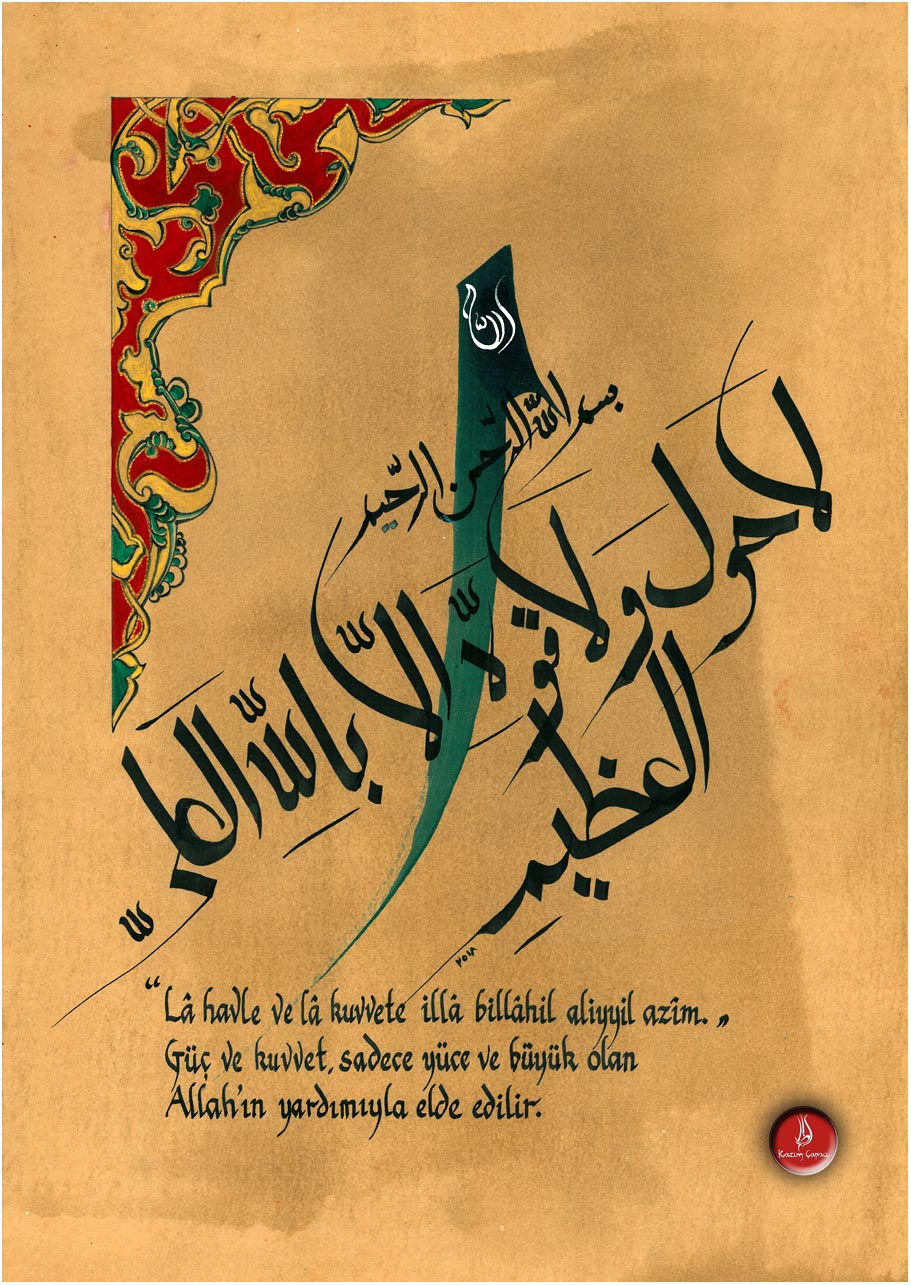 بسم الله الرحمن الرحيم
لا حول ولا قوة إلا بالله العلي
العظيم
٢٠١٨
“Lâ havle ve lâ kuvvete illâ billâhil aliyyil azîm.”
Güç ve kuvvet, sadece yüce ve büyük olan
Allah'ın yardımıyla elde edilir.